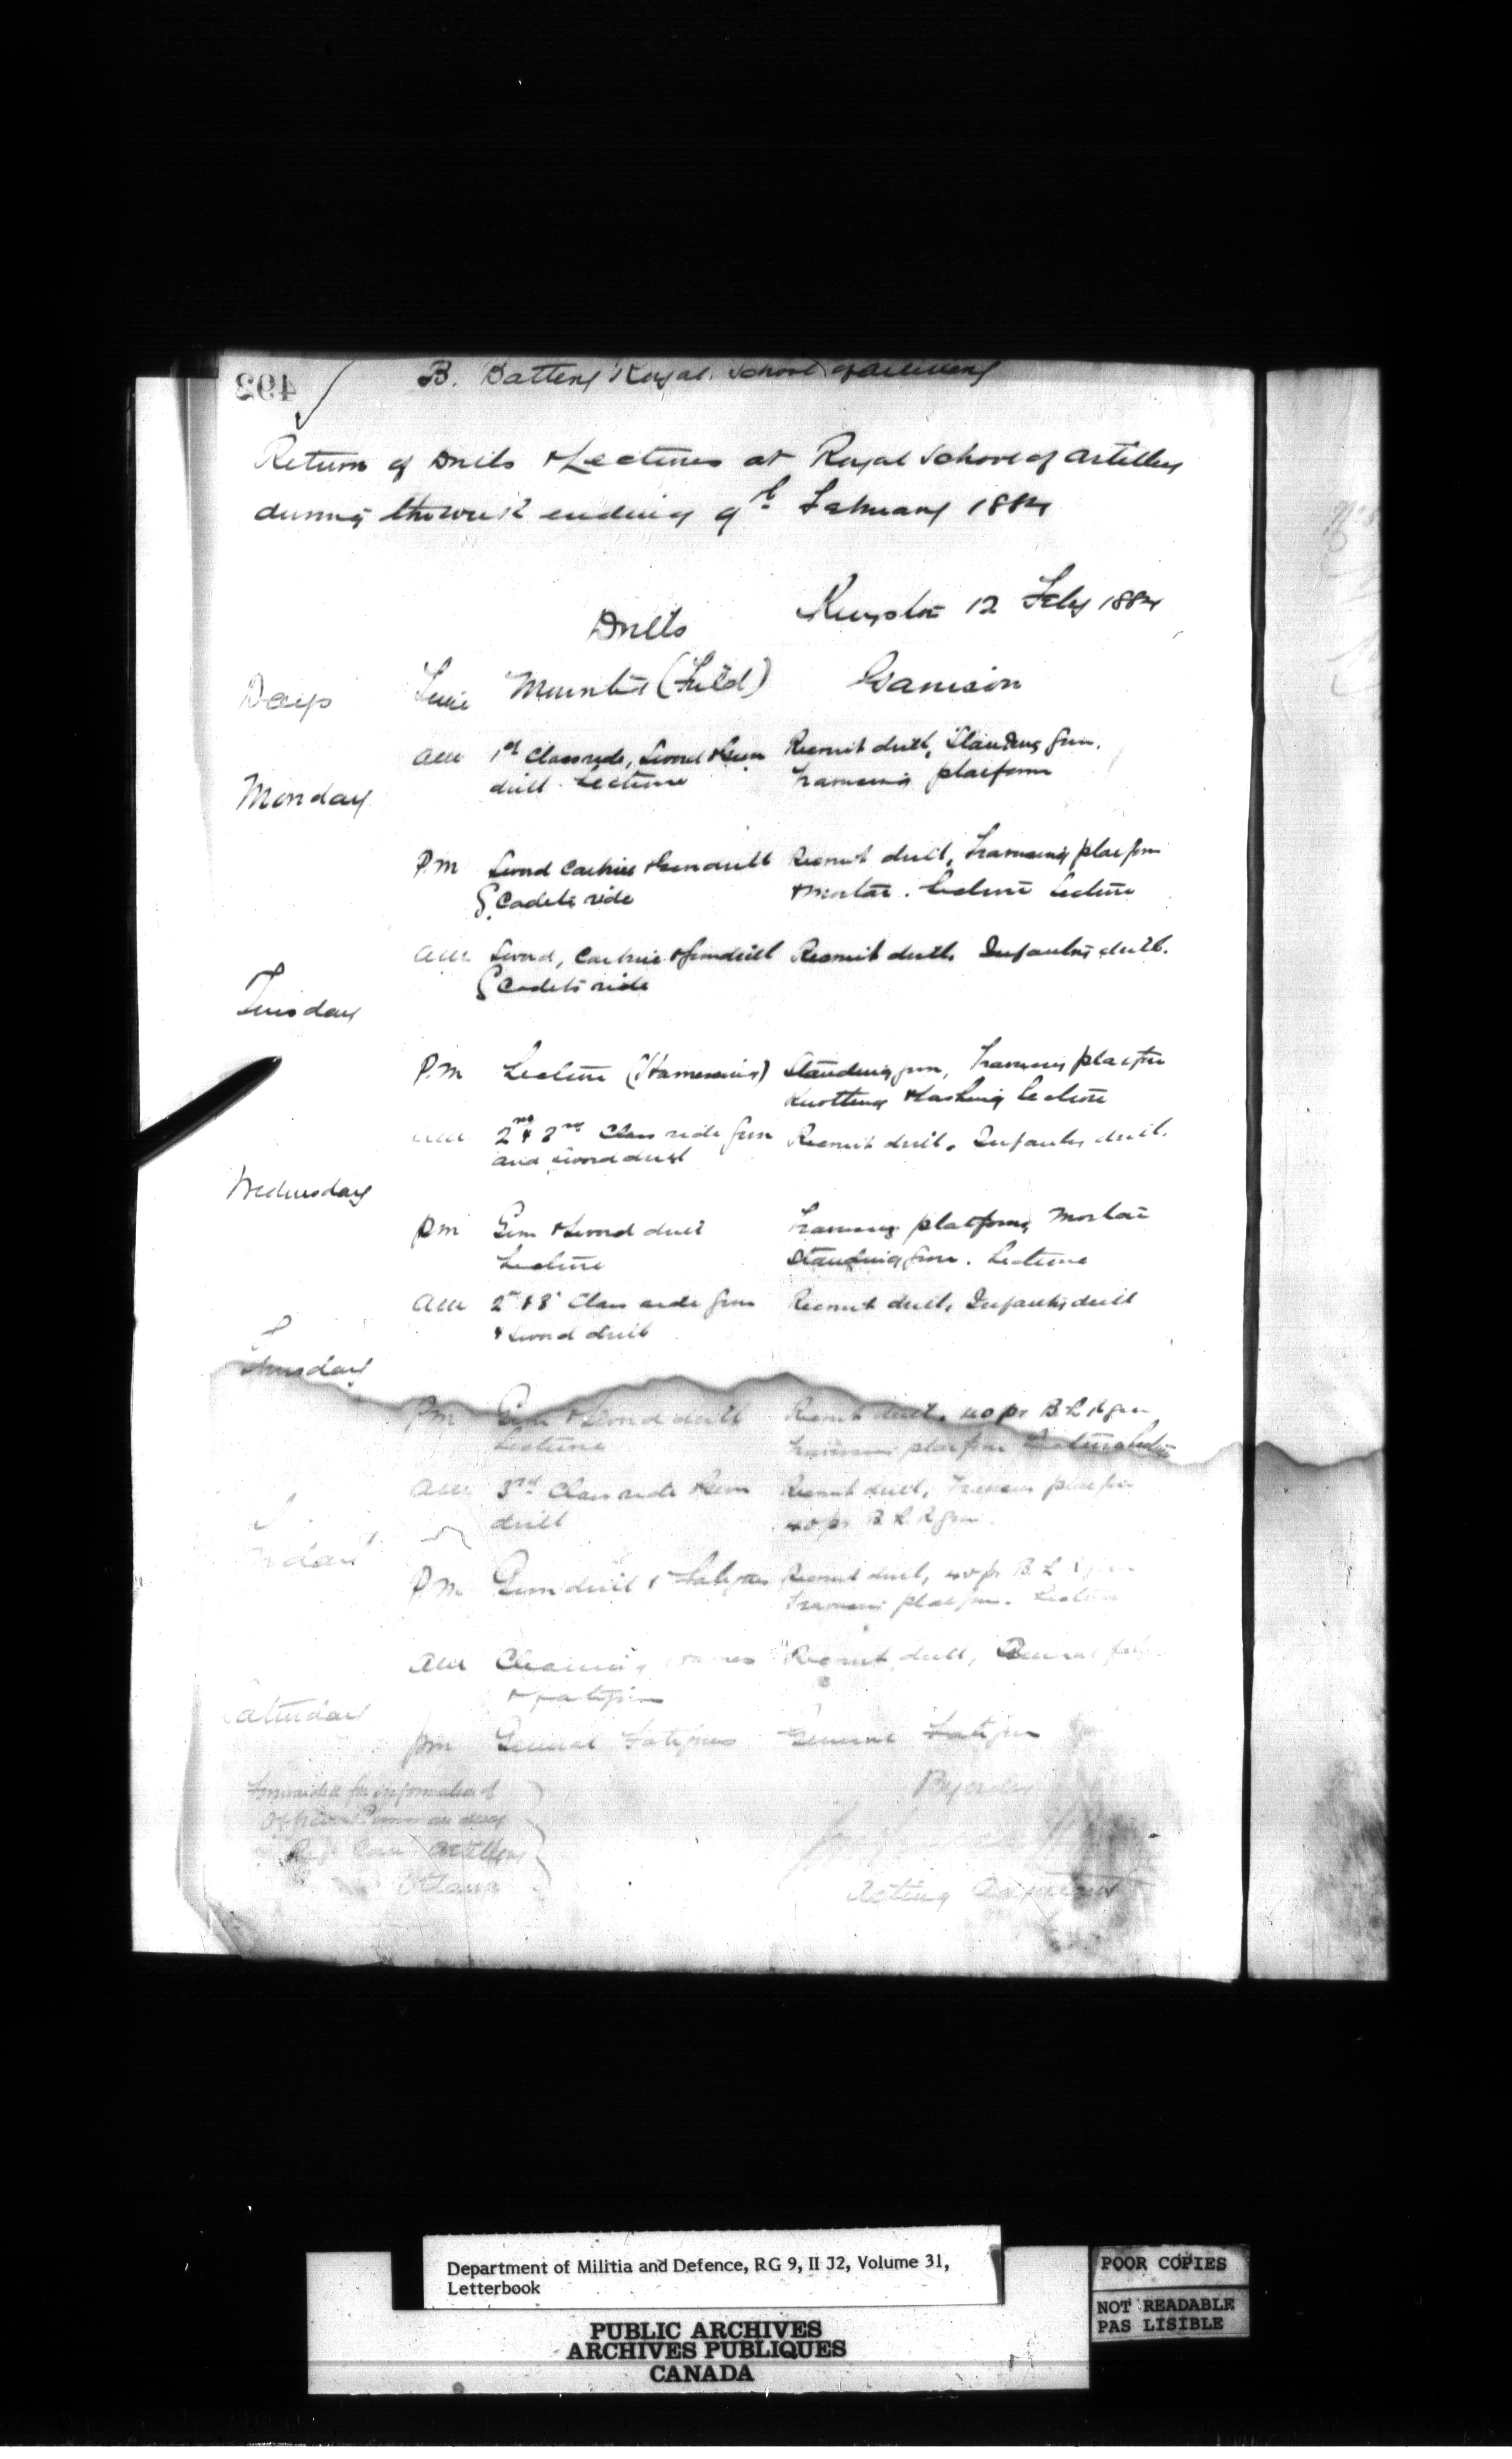 492
B. Battery Royal School of Artillery
Return of Drills & Lectures at Royal School of Artillery
during the week ending 9th February 1884
Kingston 12 Feby 1884
Drills
Days Time Mounted (Field) Garrison
am 1st Class ride, Sword & Gun Recruit drill, Standing Gun,
drill Lecture Traversing platform
Monday
P.m Sword Carbine & Gun drill Recruit drill, Traversing platform
Cadets ride & mortar. Lecture Lecture
am Sword, Carbine & Gun drill Recruit drill, Infantry drill.
Cadets ride
Tuesday
P.m Lecture (Harnessing) Standing gun, Traversing platform
Knotting & Lashing Lecture
am 2nd & 3rd Class ride Gun Recruit drill, Infantry drill.
and sword drill
Wednesday
pm Gun & Sword drill Traversing platform, Mortar
Lecture Standing Gun. Lecture
am 2nd & 3rd Class ride Gun Recruit drill, Infantry drill
& Sword drill
Thursday
Pm Gun & Sword drill Recruit drill, 40 pr B L R gun
Lecture Traversing platform Lecture
am 3rd Class ride & Gun Recruit drill, Traversing platform
drill 40 pr B L R gun.
Friday
P.m Gun drill & Fatigues Recruit drill, 40 pr B. L R gun
Traversing platform. Lecture
am Cleaning Harness Recruit drill, General
& fatigues
Saturday
pm General Fatigues General Fatigues
Forwarded for information of
Officer Commanding
Regt Can Artillery
Ottawa
By order
Acting Adjutant
Department of Militia and Defence, RG 9, II J2, Volume 31,
Letterbook
PUBLIC ARCHIVES
ARCHIVES PUBLIQUES
CANADA
POOR COPIES
NOT READABLE
PAS LISIBLE